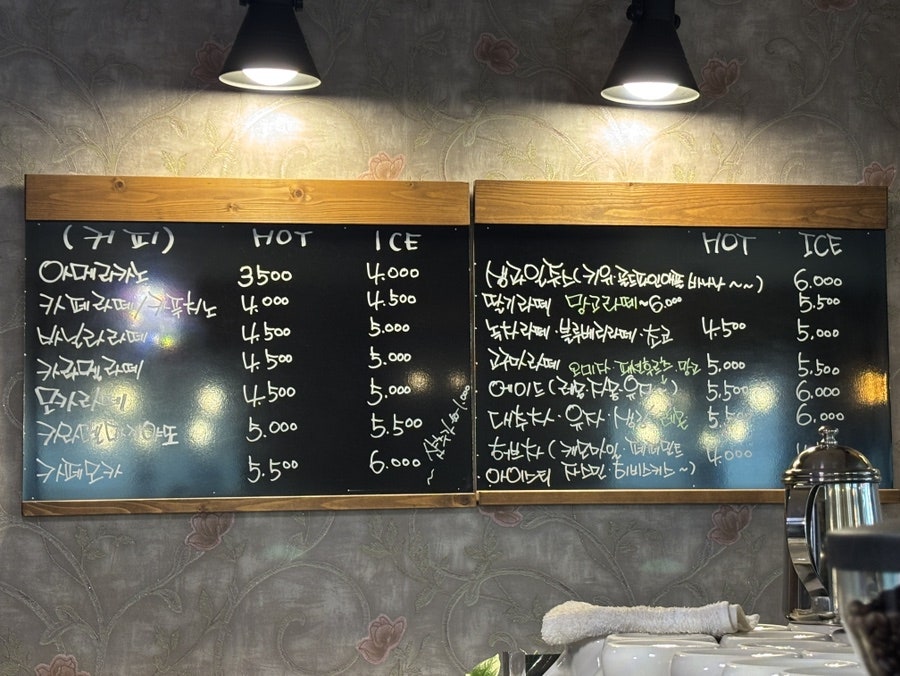 (커피) HOT ICE
아메리카노 3500 4.000
카페라떼/카푸치노 4.000 4.500
바닐라라떼 4.500 5.000
카라멜라떼 4.500 5.000
모카라떼 4.500 5.000
카라멜마끼아또 5.000 5.500
카페모카 5.500 6.000
~ 샷추가 1,000
HOT ICE
생과일쥬스(키위·골드파인애플 바나나 ~~) 6.000
딸기라떼 망고라떼~6.000 5.500
녹차라떼·블루베리라떼·초코 4.500 5,000
고구마라떼 오미자·패션후르츠·망고 5.000 5.500
에이드(레몬·자몽·유자~) 5,500 6.000
대추차·유자·생강·레몬 5.500 6.000
허브차(캐모마일·페퍼민트 4.000
아이스티 쟈스민·히비스커스~)